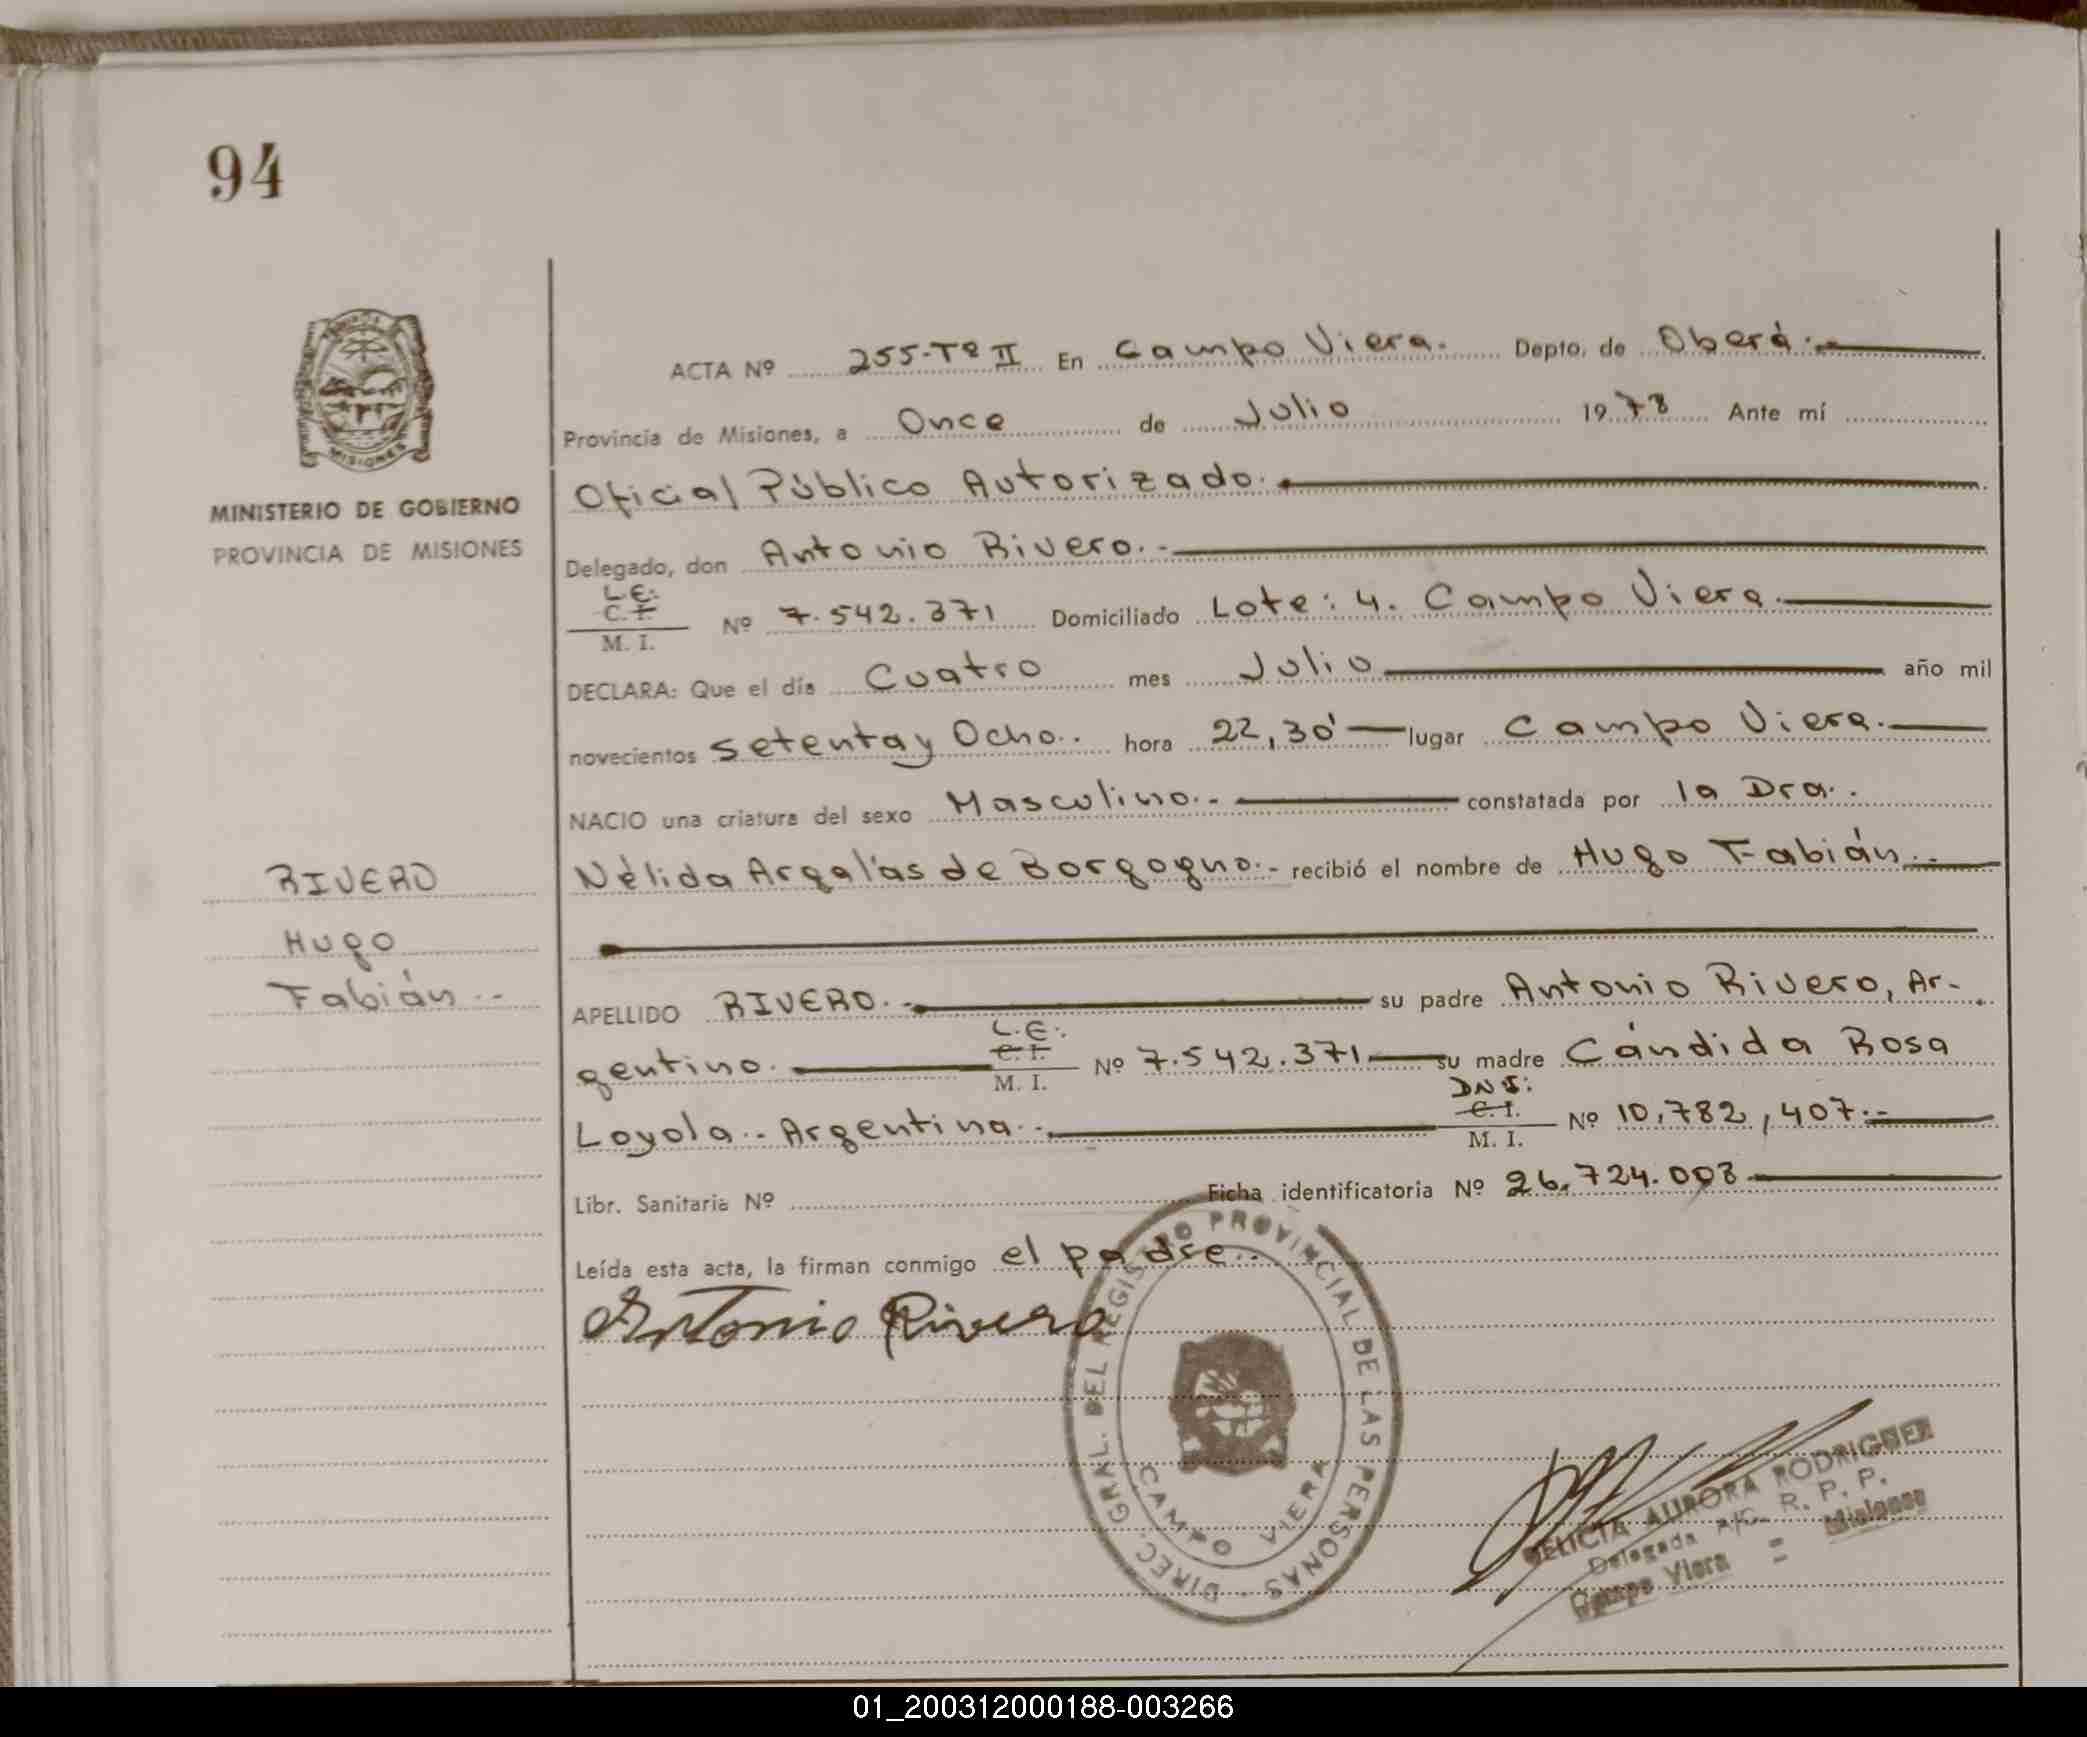 94
PROVINCIA DE
MISIONES
MINISTERIO DE GOBIERNO
PROVINCIA DE MISIONES
RIVERO
Hugo
Fabián.-
ACTA Nº 255-Tº II En Campo Viera. Depto. de Oberá.-
Provincia de Misiones, a Once de Julio 1978 Ante mí
Oficial Público Autorizado.
Delegado, don Antonio Rivero.-
L.E:
C. I.
M. I. Nº 7.542.371 Domiciliado Lote: 4. Campo Viera.
DECLARA: Que el día Cuatro mes Julio año mil
novecientos setenta y Ocho.. hora 22,30' lugar Campo Viera.
NACIO una criatura del sexo Masculino.- constatada por la Dra..
Nélida Argalás de Borgogno.- recibió el nombre de Hugo Fabián.-
APELLIDO RIVERO.- su padre Antonio Rivero, Ar-
gentino. L.E:
C. I.
M. I. Nº 7.542.371 su madre Cándida Rosa
Loyola.- Argentina.- DNI:
C. I.
M. I. Nº 10,782,407.-
Libr. Sanitaria Nº Ficha identificatoria Nº 26.724.008
Leída esta acta, la firman conmigo el padre..
Antonio Rivero
DIREC. GRAL. DEL REGISTRO PROVINCIAL DE LAS PERSONAS
CAMPO VIERA
AURORA RODRIGUEZ
Delegada A/C. R. P. P.
Campo Viera - Misiones
01_200312000188-003266